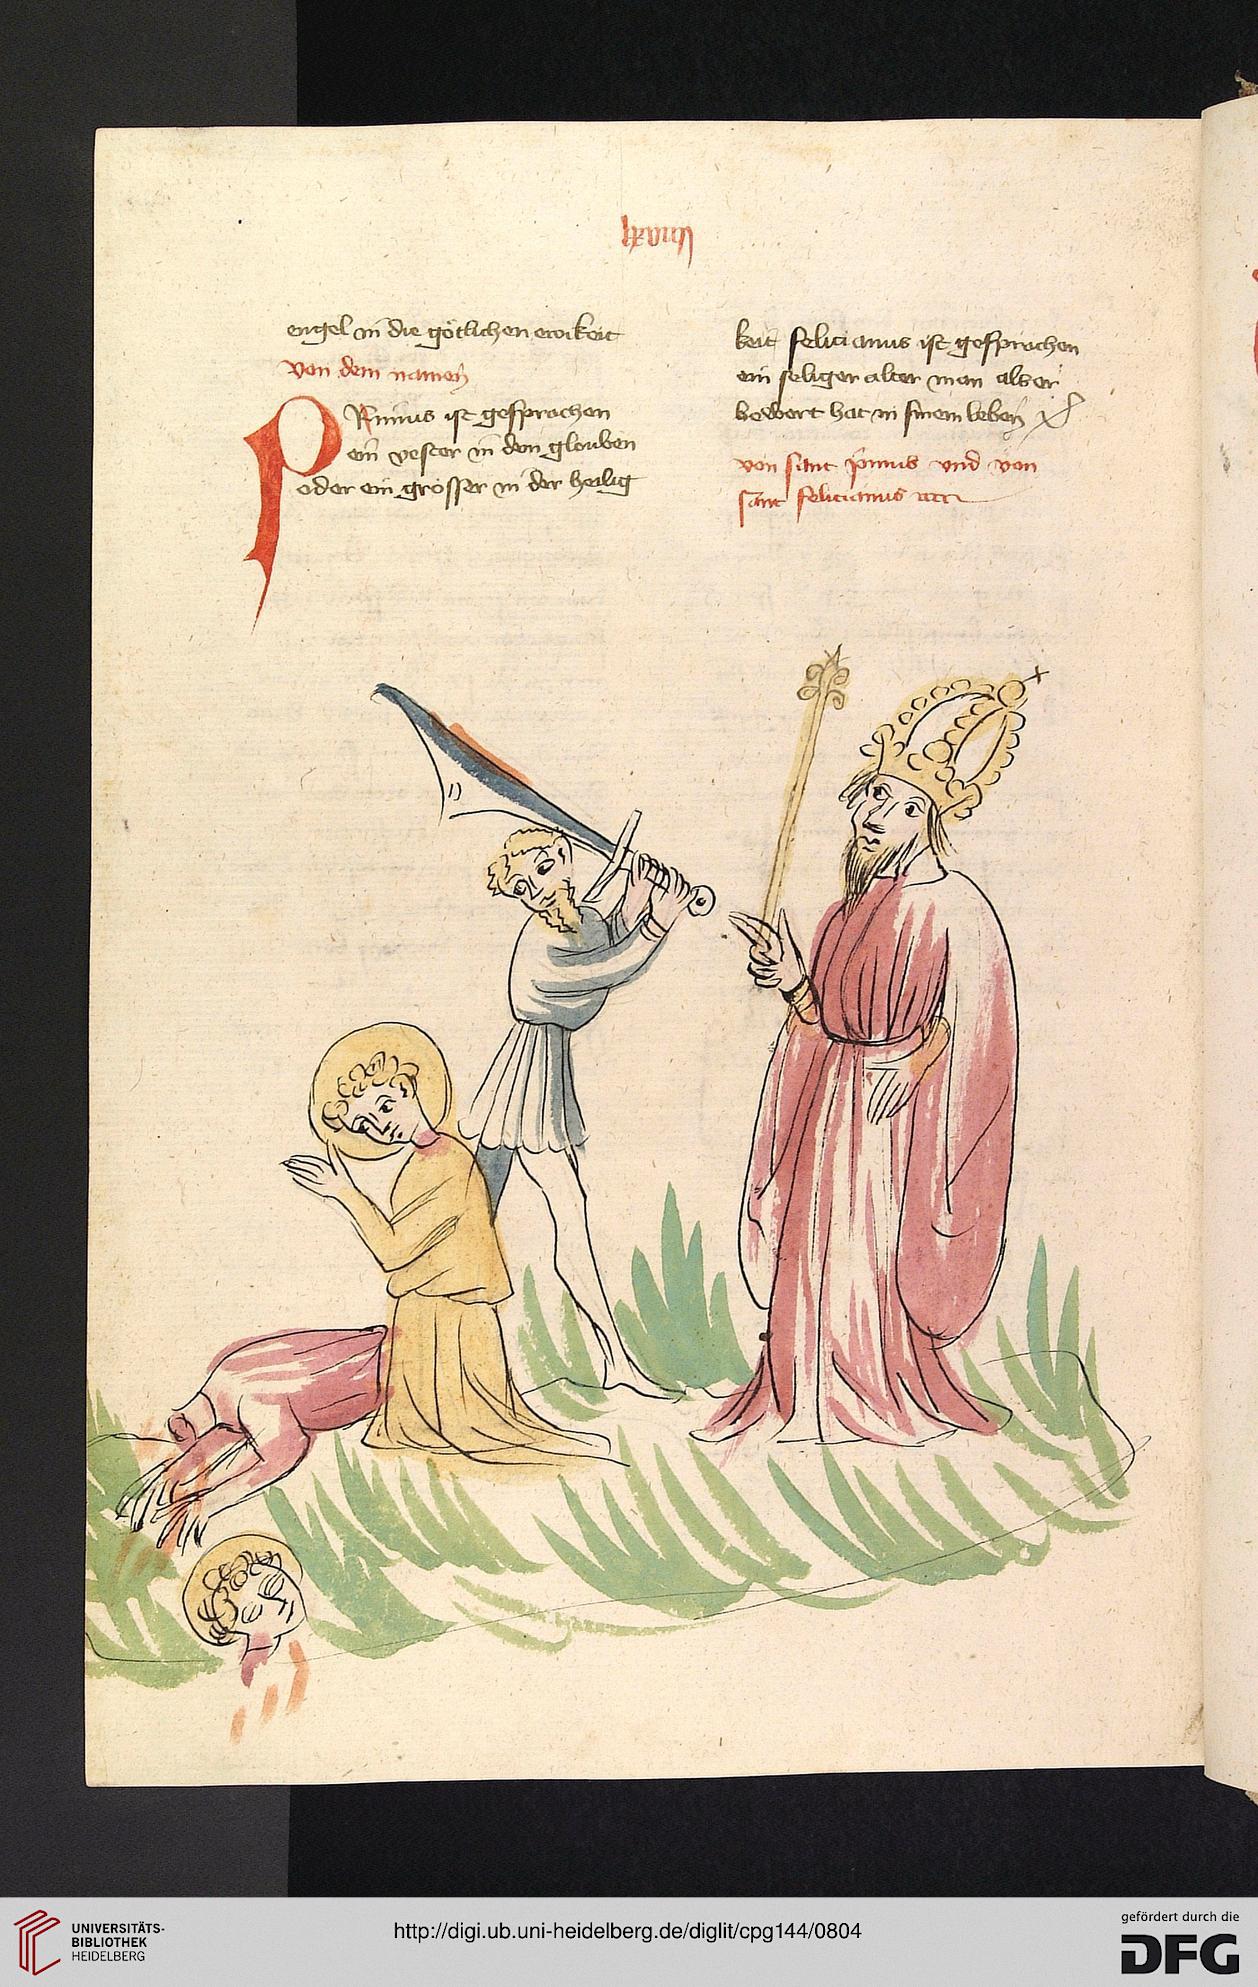 lxxviiij
engel in die götlichen ewikeit
von dem namen
PRimus ist gesprochen
ein vester in dem glouben
oder ein grosser in der heilig
keit felicianus ist gesprochen
ein seliger alter man als er
bewert hat in sinem leben
von sant primus und von
sant felicianus
UNIVERSITÄTS-
BIBLIOTHEK
HEIDELBERG
http://digi.ub.uni-heidelberg.de/diglit/cpg144/0804
gefördert durch die
DFG